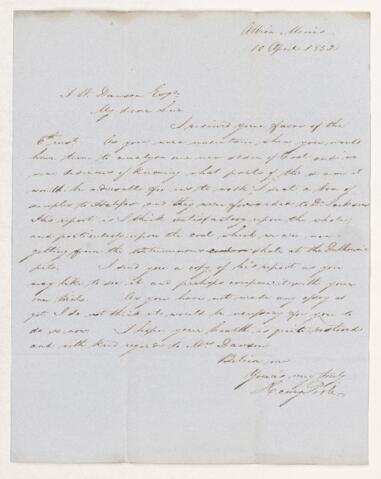 Albion Mines
10 April 1852
J W Dawson Esqr
My dear Sir
I received your favor of the
6th inst. As you were uncertain when you would
have time to analyse our new seam of Coal and we
was desirous of knowing what part of the seam it
would be advisable for us to work, I sent a box of
samples to Halifax and they were forwarded to Dr Jackson
His report is I think satisfactory upon the whole
and particularly upon the coal which we are now
getting from the shale at the Dalhousie
pits. I send you a copy of his report as you
may like to see it and perhaps compare it with your
own trials. As you have not made any assay as
yet I do not think it would be necessary for you to
do so now. I hope your health is quite restored
and with kind regards to Mrs Dawson
Believe me
Yours very truly
Henry Poole